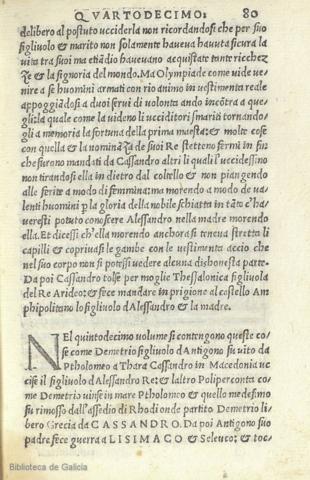 QVARTODECIMO: 80
delibero al postuto ucciderla non ricordandosi che per suo
figliuolo & marito non solamente haveva havuta sicura la
vita tra suoi ma etiādio havevano acquistate tante ricchez
ze & la signoria del mondo. Ma Olympiade come vide ve
nire a se huomini armati con rio animo in vestimenta reale
appoggiādosi a duoi servi di volonta ando incōtra a que
gli: la quale come la videno li ucciditori smariti tornando
gli a memoria la fortuna della prima maesta: & molte cose
con quella & la nomināza de suoi Re stetteno fermi in fin
che furono mandati da Cassandro altri li quali l'uccidessino
non tirandosi ella in dietro dal coltello & non piangendo
alle ferite a modo di femmina: ma morendo a modo de va
lenti huomini p la gloria della nobile schiatta in tāto c'ha
veresti potuto conoscere Alessandro nella madre morendo
ella. Et dicessi ch'ella morendo anchora si teneva stretta li
capilli & coprivase le gambe con le vestimenta accio che
nel suo corpo non si potessi vedere alcuna dishonesta parte.
Da poi Cassandro tolse per moglie Thessalonica figliuola
del Re Arideo: & fece mandare in prigione al castello Am
phipolitano lo figliuolo d'Alessandro & la madre.
NEl quintodecimo volume si contengono queste co
se come Demetrio figliuolo d'Antigono fu vito da
Ptholomeo a Thara Cassandro in Macedonia uc
cise il figliuolo d'Alessandro Re: & l'altro Poliperconta co
me Demetrio vinse in mare Ptholomeo & quello medesimo
fu rimosso dall'assedio di Rhodi onde partito Demetrio li
bero Grecia da CASSANDRO. Da poi Antigono suo
padre fece guerra a LISIMACO & Seleuco: & toc/
Biblioteca de Galicia